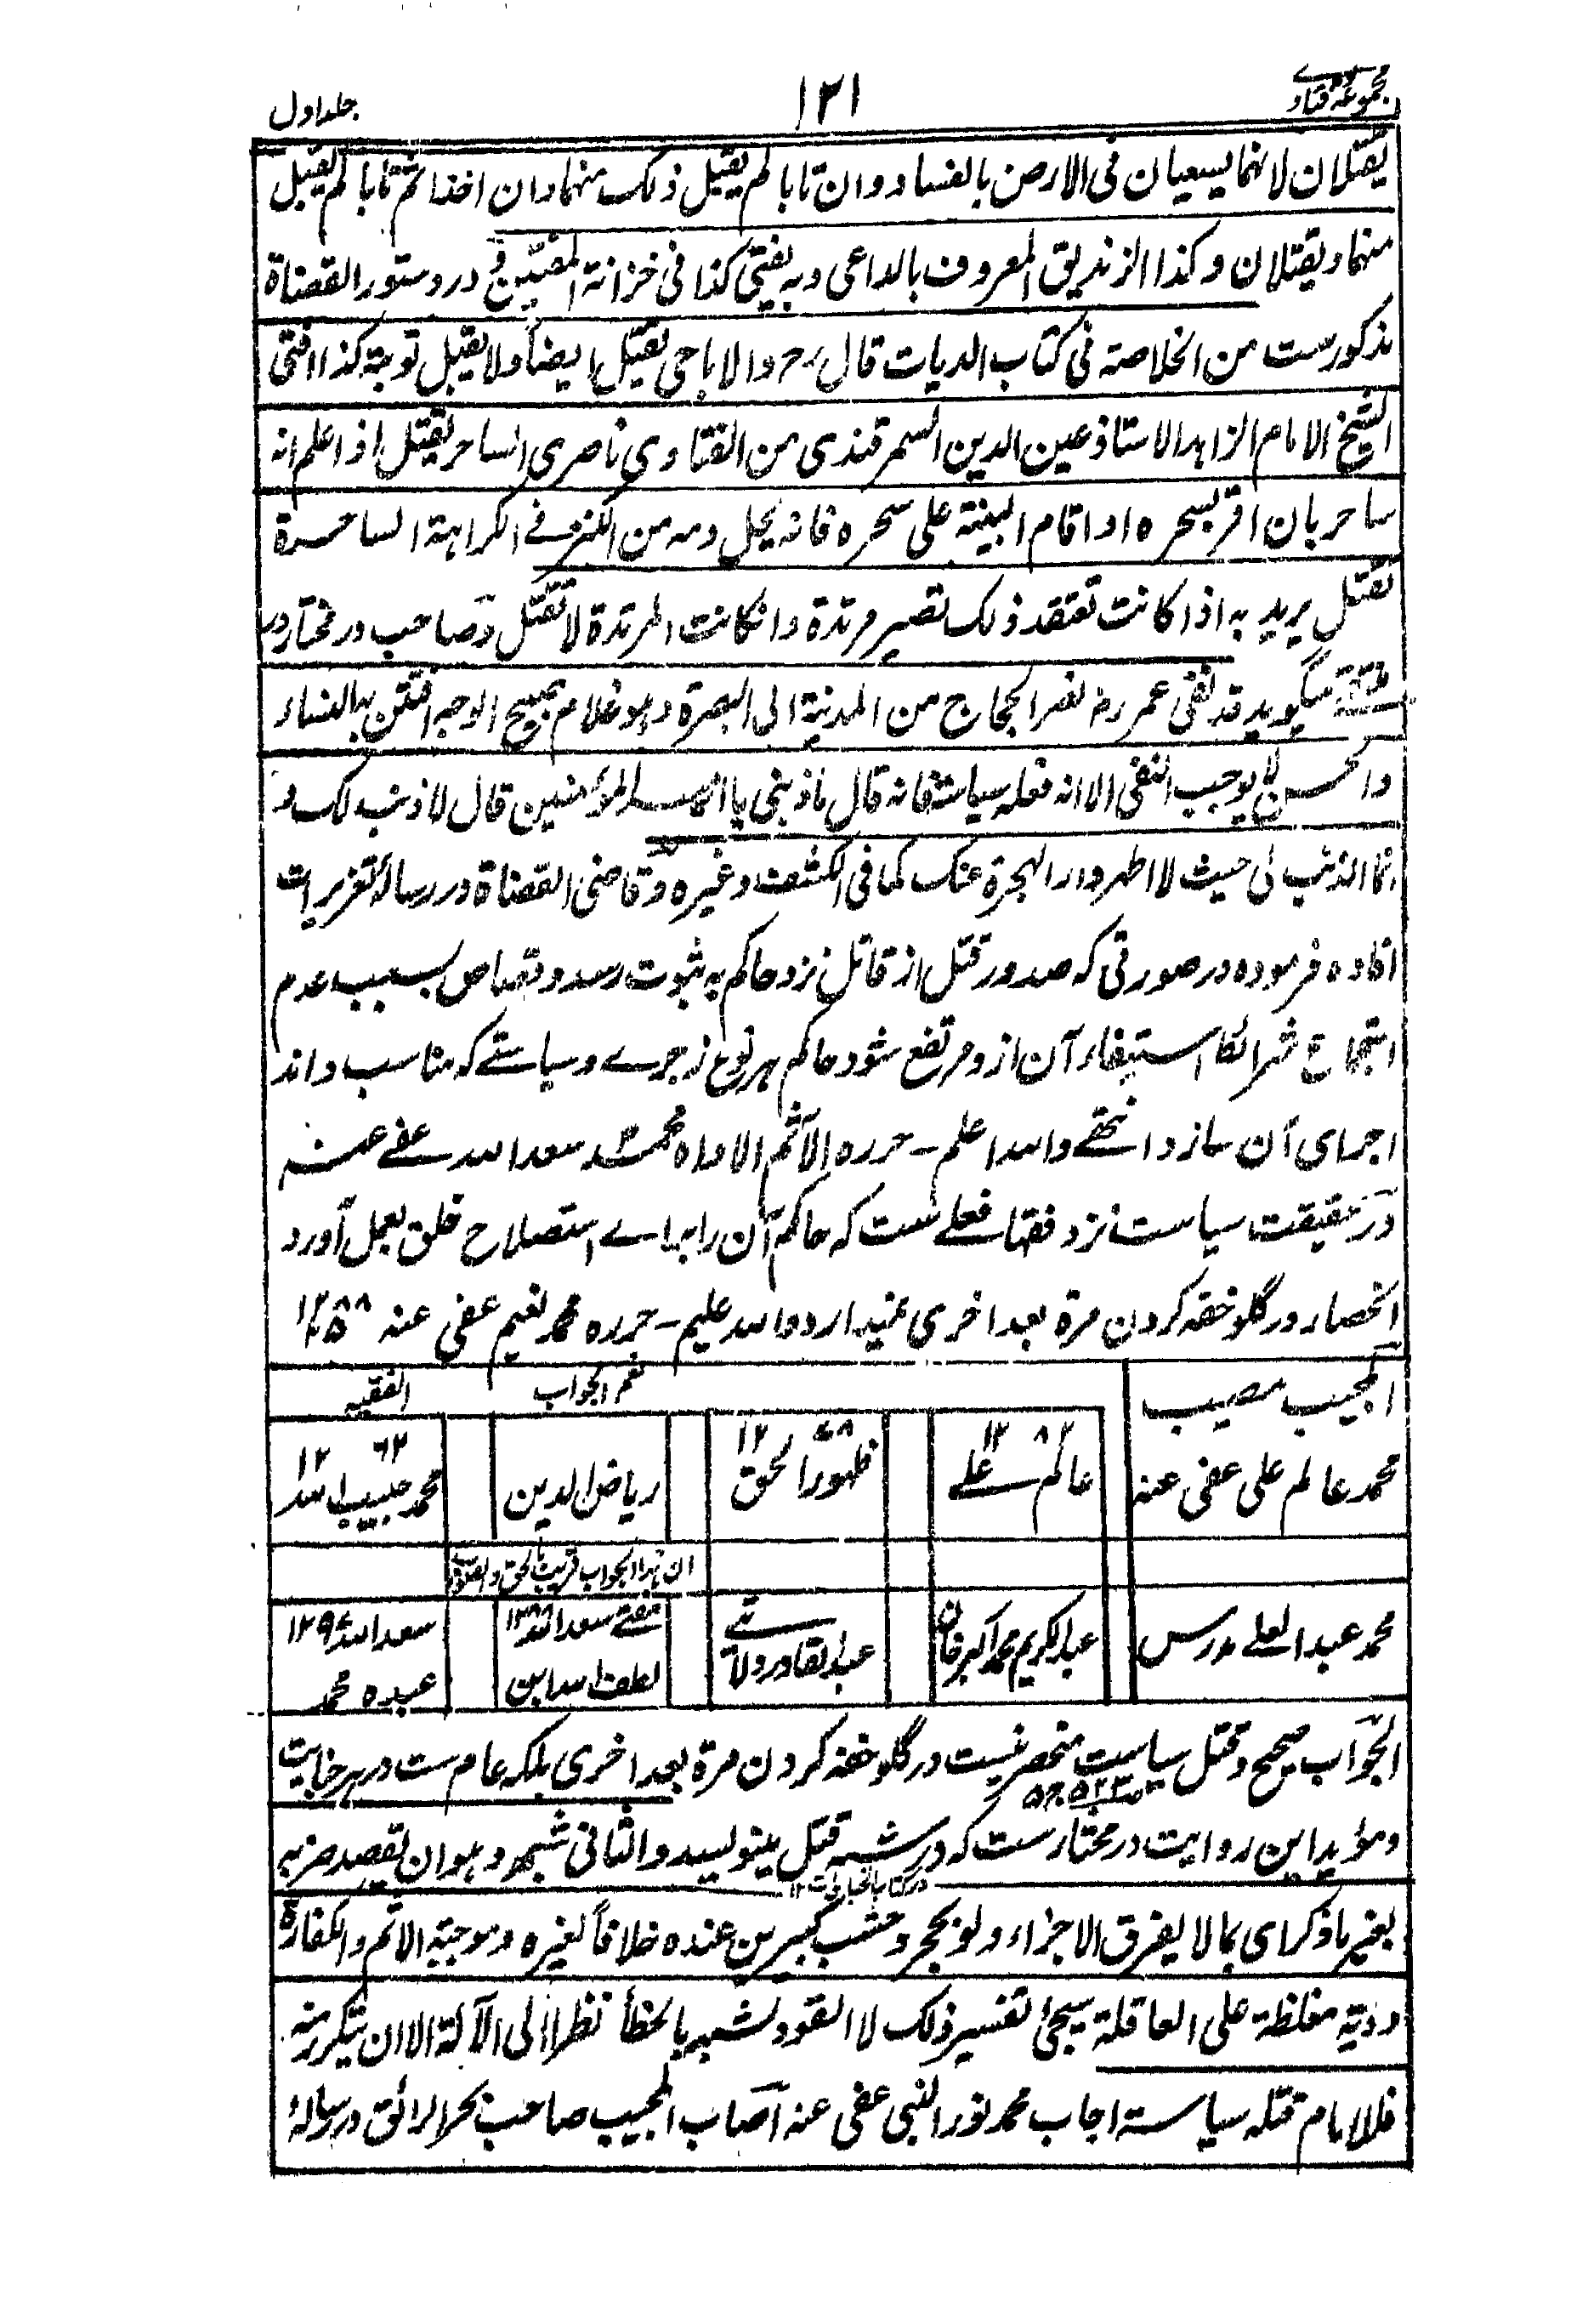 مجموعۂ فتاوے
۱۲۱
جلد اول
یقتلان لانہما یسعیان فی الارض بالفساد وان تابا لم یقبل ذلک منہما وان اخذا ثم تابا لم یقبل
منہما ویقتلان وکذا الزندیق المعروف بالداعی وبہ یفتی کذا فی خزانۃ المفتیین و در دستور القضاۃ
مذکورست من الخلاصۃ فی کتاب الدیات قال رح والاباحی یقتل ایضاً ولا یقبل توبتہ کذا افتی
الشیخ الامام الزاہد الاستاذ عین الدین السمرقندی من الفتاوی ناصری الساحر یقتل اذا علم انہ
ساحر بان اقر بسحرہ او اقام البینۃ علی سحرہ فانہ یحل دمہ من الکنز فے الکراہۃ الساحرۃ
تقتل یرید بہ اذا کانت تعتقد ذلک تصیر مرتدۃ وانکانت المرتدۃ لا تقتل وصاحب در مختار در
ملتقے میگوید قد نفی عمر رض نصر الحجاج من المدینۃ الی البصرۃ وہو غلام صبیح الوجہ افتتن بہ النساء
والحسن لا یوجب النفی الا انہ فعلہ سیاسۃ فانہ قال ما ذنبی یا امیر المؤمنین قال لا ذنب لک و
انما الذنب لی حیث لا اطہر دار الہجرۃ عنک کما فی الکشف وغیرہ و قاضی القضاۃ در رسالۂ تعزیرات
افادہ فرمودہ در صورتی کہ صدور قتل از قاتل نزد حاکم بہ ثبوت رسد و قصاص بسبب عدم
اجتماع شرائط استیفاء آن ازو مرتفع شود حاکم ہر نوع زجرے و سیاستے کہ مناسب داند
اجرای آن سازد انتہے واللہ اعلم ۔ حررہ الآثم الاواہ محمد سعد اللہ عفے عنہ
در حقیقت سیاست نزد فقہا فعلے ست کہ حاکم آن را براے استصلاح خلق بعمل آورد
انحصار در گلو خفہ کردن مرۃ بعد اخری نمیدارد واللہ علیم ۔ حررہ محمد نعیم عفی عنہ
المجیب مصیب
نعم الجواب
الفقیہ
محمد عالم علی عفی عنہ
عالم علے ۱۲۸۲
ظہور الحق
ریاض الدین
محمد حبیب اللہ ۱۲۶۲
ان ہذا الجواب قریب بالحق والصواب
محمد عبد العلے مدرس
عبد الکریم محمد اکبر خان
عبد القادر ولا
مفتے سعد اللہ
لطف اللہ ابن
سعد اللہ
عبدہ محمد
الجواب صحیح و قتل سیاست منحصر نیست در گلو خفہ کردن مرۃ بعد اخری بلکہ عام ست در ہر جنایت
و مؤید این روایت در مختارست کہ در شبہ قتل مینویسد والثانی شبہہ وہو ان یقصد ضربہ
در کتاب الجنایات ۱۲
بغیر ما ذکر ای بما لا یفرق الاجزاء ولو بحجر و خشب کبیرین عندہ خلافاً لغیرہ وموجبہ الاثم والکفارۃ
ودیۃ مغلظۃ علی العاقلۃ سیجئ تفسیر ذلک لا القود لشبہہ بالخطأ نظراً الی الآلۃ الا ان یتکرر منہ
فللامام قتلہ سیاسۃ اجاب محمد نور النبی عفی عنہ اصاب المجیب صاحب بحر الرائق در رسالۂ